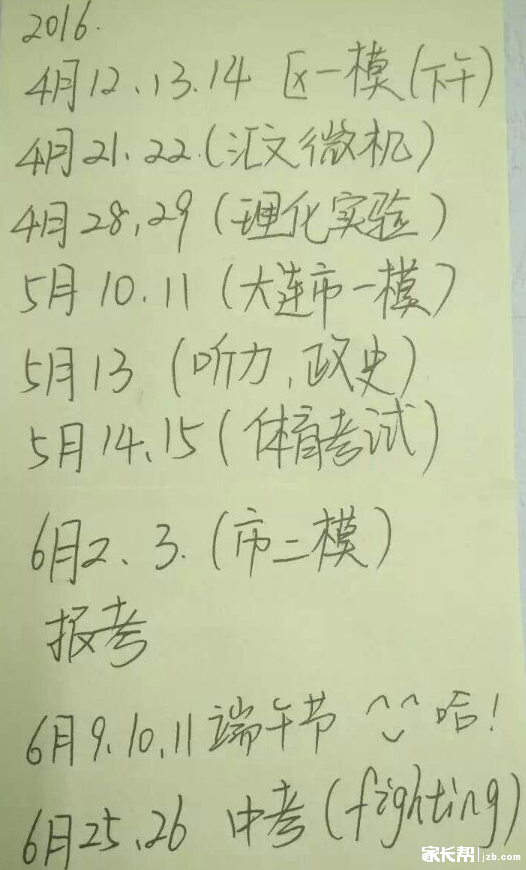 2016.
4月12、13.14 区一模(下午)
4月21、22.(汇文微机)
4月28,29(理化实验)
5月10.11(大连市一模)
5月13(听力、政史)
5月14、15(体育考试)
6月2、3.(市二模)
报考
6月9.10,11端午节 ^^哈!
6月25,26 中考(fighting)
家长帮 jzb.com